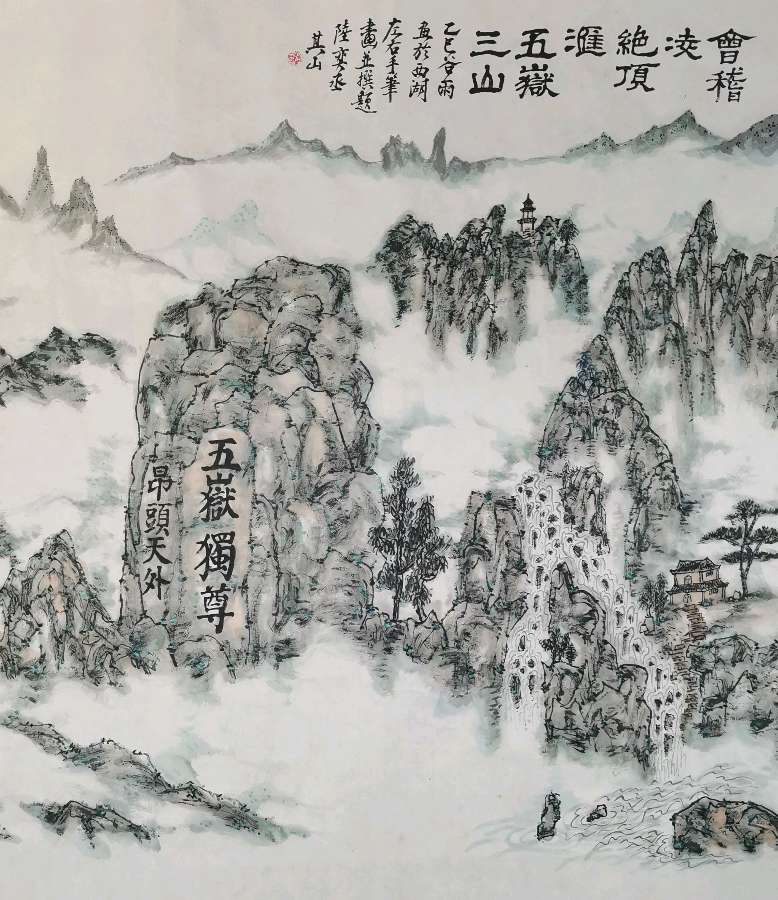 會稽
凌
絶頂
滙
五嶽
三山
乙巳谷雨
画於西湖
左右手筆
畫並撰題
陸奕丞
其山
五嶽獨尊
昂頭天外